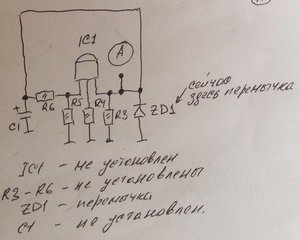 IC1
A
сейчас
здесь перемычка
C1
R6
R5
R4
R3
ZD1
IC1 - не установлен
R3-R6 - не установлены
ZD1 - перемычка
C1 - не установлен.